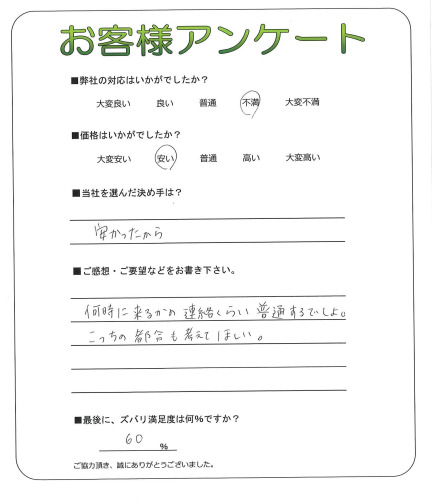 お客様アンケート
■弊社の対応はいかがでしたか？
大変良い 良い 普通 不満 大変不満
■価格はいかがでしたか？
大変安い 安い 普通 高い 大変高い
■当社を選んだ決め手は？
安かったから
■ご感想・ご要望などをお書き下さい。
何時に来るかの連絡くらい普通するでしょ。
こっちの都合も考えてほしい。
■最後に、ズバリ満足度は何％ですか？
60 ％
ご協力頂き、誠にありがとうございました。